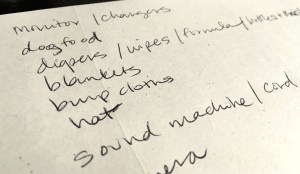 monitor / chargers
dog food
diapers / wipes / formula / bottles +
blankets
burp cloths
hat
sound machine / cord